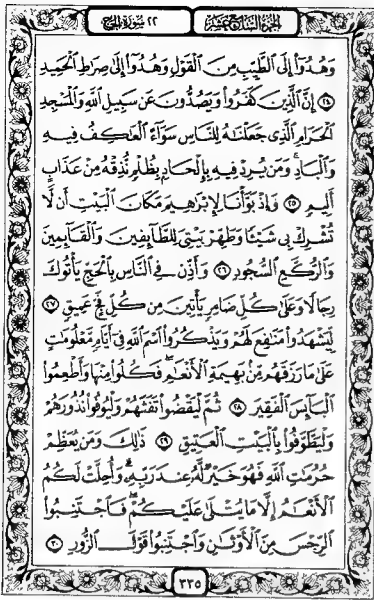 الجزء السابع عشر ٢٢ سورة الحج
وَهُدُوٓا۟ إِلَى ٱلطَّيِّبِ مِنَ ٱلْقَوْلِ وَهُدُوٓا۟ إِلَىٰ صِرَٰطِ ٱلْحَمِيدِ
۝٢٤ إِنَّ ٱلَّذِينَ كَفَرُوا۟ وَيَصُدُّونَ عَن سَبِيلِ ٱللَّهِ وَٱلْمَسْجِدِ
ٱلْحَرَامِ ٱلَّذِى جَعَلْنَٰهُ لِلنَّاسِ سَوَآءً ٱلْعَٰكِفُ فِيهِ
وَٱلْبَادِ ۚ وَمَن يُرِدْ فِيهِ بِإِلْحَادٍۭ بِظُلْمٍ نُّذِقْهُ مِنْ عَذَابٍ
أَلِيمٍ ۝٢٥ وَإِذْ بَوَّأْنَا لِإِبْرَٰهِيمَ مَكَانَ ٱلْبَيْتِ أَن لَّا
تُشْرِكْ بِى شَيْـًٔا وَطَهِّرْ بَيْتِىَ لِلطَّآئِفِينَ وَٱلْقَآئِمِينَ
وَٱلرُّكَّعِ ٱلسُّجُودِ ۝٢٦ وَأَذِّن فِى ٱلنَّاسِ بِٱلْحَجِّ يَأْتُوكَ
رِجَالًا وَعَلَىٰ كُلِّ ضَامِرٍ يَأْتِينَ مِن كُلِّ فَجٍّ عَمِيقٍ ۝٢٧
لِّيَشْهَدُوا۟ مَنَٰفِعَ لَهُمْ وَيَذْكُرُوا۟ ٱسْمَ ٱللَّهِ فِىٓ أَيَّامٍ مَّعْلُومَٰتٍ
عَلَىٰ مَا رَزَقَهُم مِّنۢ بَهِيمَةِ ٱلْأَنْعَٰمِ ۖ فَكُلُوا۟ مِنْهَا وَأَطْعِمُوا۟
ٱلْبَآئِسَ ٱلْفَقِيرَ ۝٢٨ ثُمَّ لْيَقْضُوا۟ تَفَثَهُمْ وَلْيُوفُوا۟ نُذُورَهُمْ
وَلْيَطَّوَّفُوا۟ بِٱلْبَيْتِ ٱلْعَتِيقِ ۝٢٩ ذَٰلِكَ وَمَن يُعَظِّمْ
حُرُمَٰتِ ٱللَّهِ فَهُوَ خَيْرٌ لَّهُۥ عِندَ رَبِّهِۦ ۗ وَأُحِلَّتْ لَكُمُ
ٱلْأَنْعَٰمُ إِلَّا مَا يُتْلَىٰ عَلَيْكُمْ ۖ فَٱجْتَنِبُوا۟
ٱلرِّجْسَ مِنَ ٱلْأَوْثَٰنِ وَٱجْتَنِبُوا۟ قَوْلَ ٱلزُّورِ ۝٣٠
٣٣٥